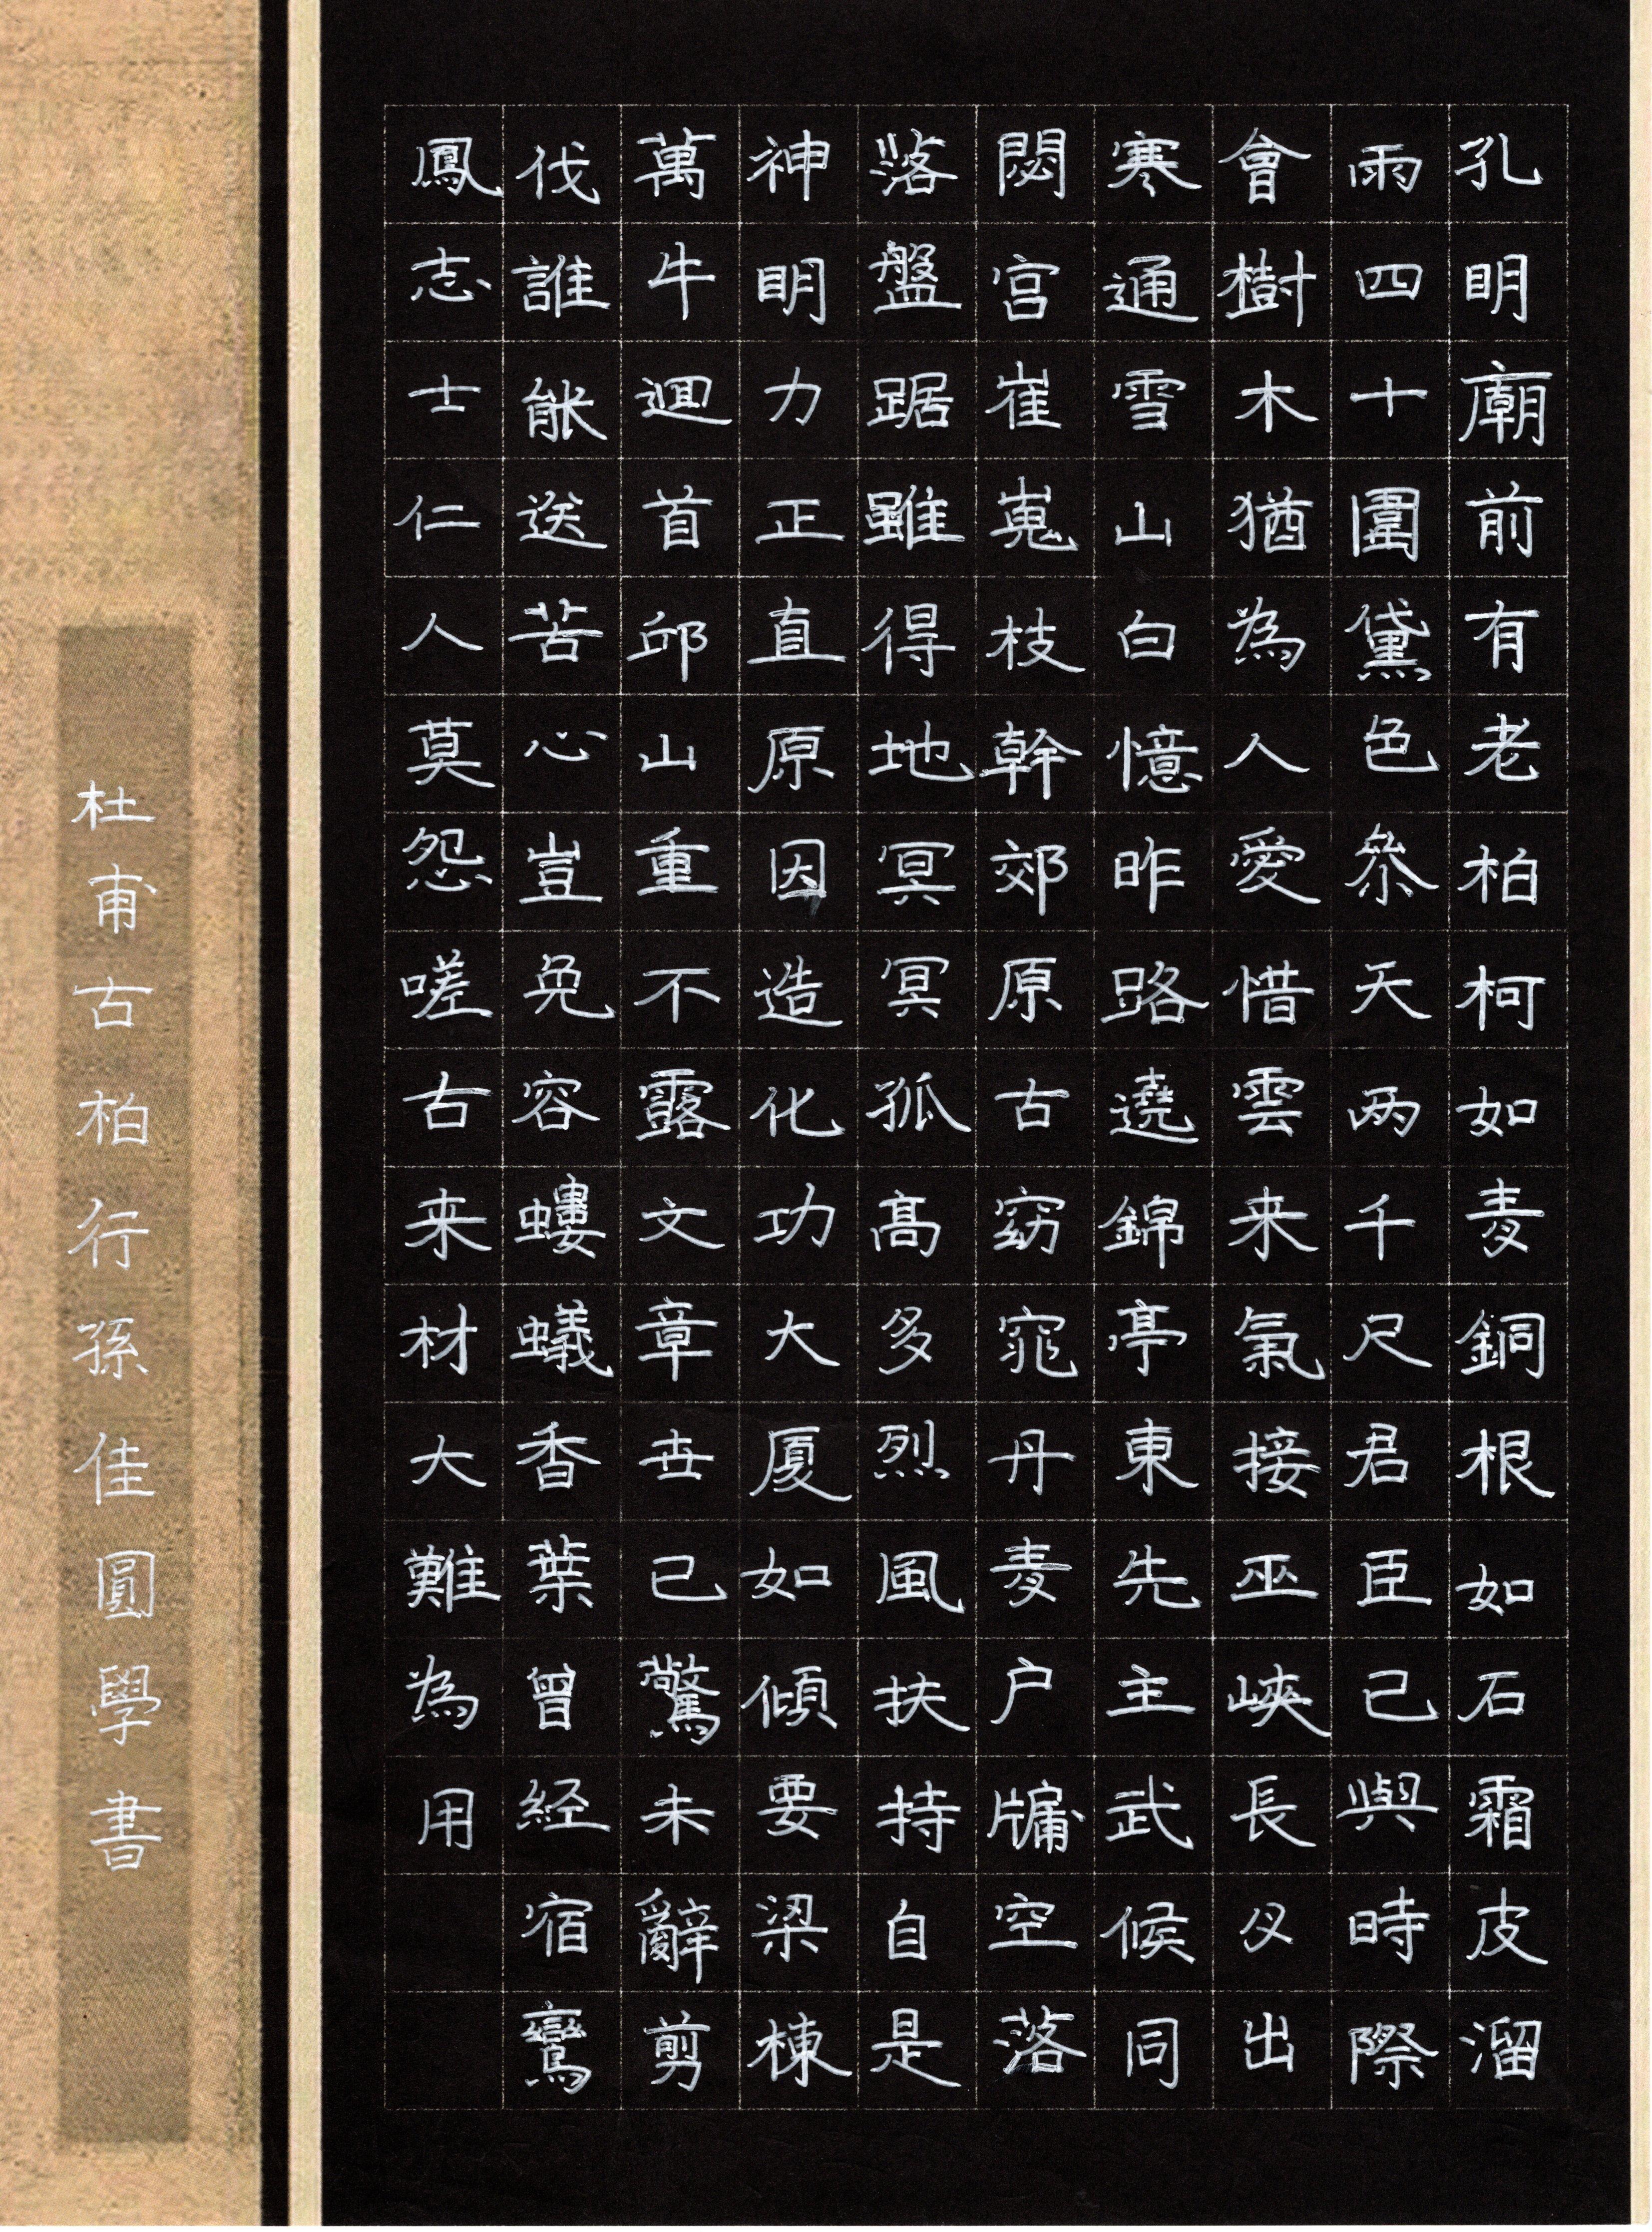 孔明廟前有老柏柯如青銅根如石霜皮溜
雨四十圍黛色叅天两千尺君臣已與時際
會樹木猶為人愛惜雲来氣接巫峽長月出
寒通雪山白憶昨路遶錦亭東先主武候同
閟宫崔嵬枝幹郊原古窈窕丹青户牖空落
落盤踞雖得地冥冥孤髙多烈風扶持自是
神明力正直原因造化功大厦如傾要梁棟
萬牛迴首邱山重不露文章世已驚未辭剪
伐誰能送苦心豈免容螻蟻香葉曾経宿鸞
鳳志士仁人莫怨嗟古来材大難為用
杜甫古柏行孫佳圓學書